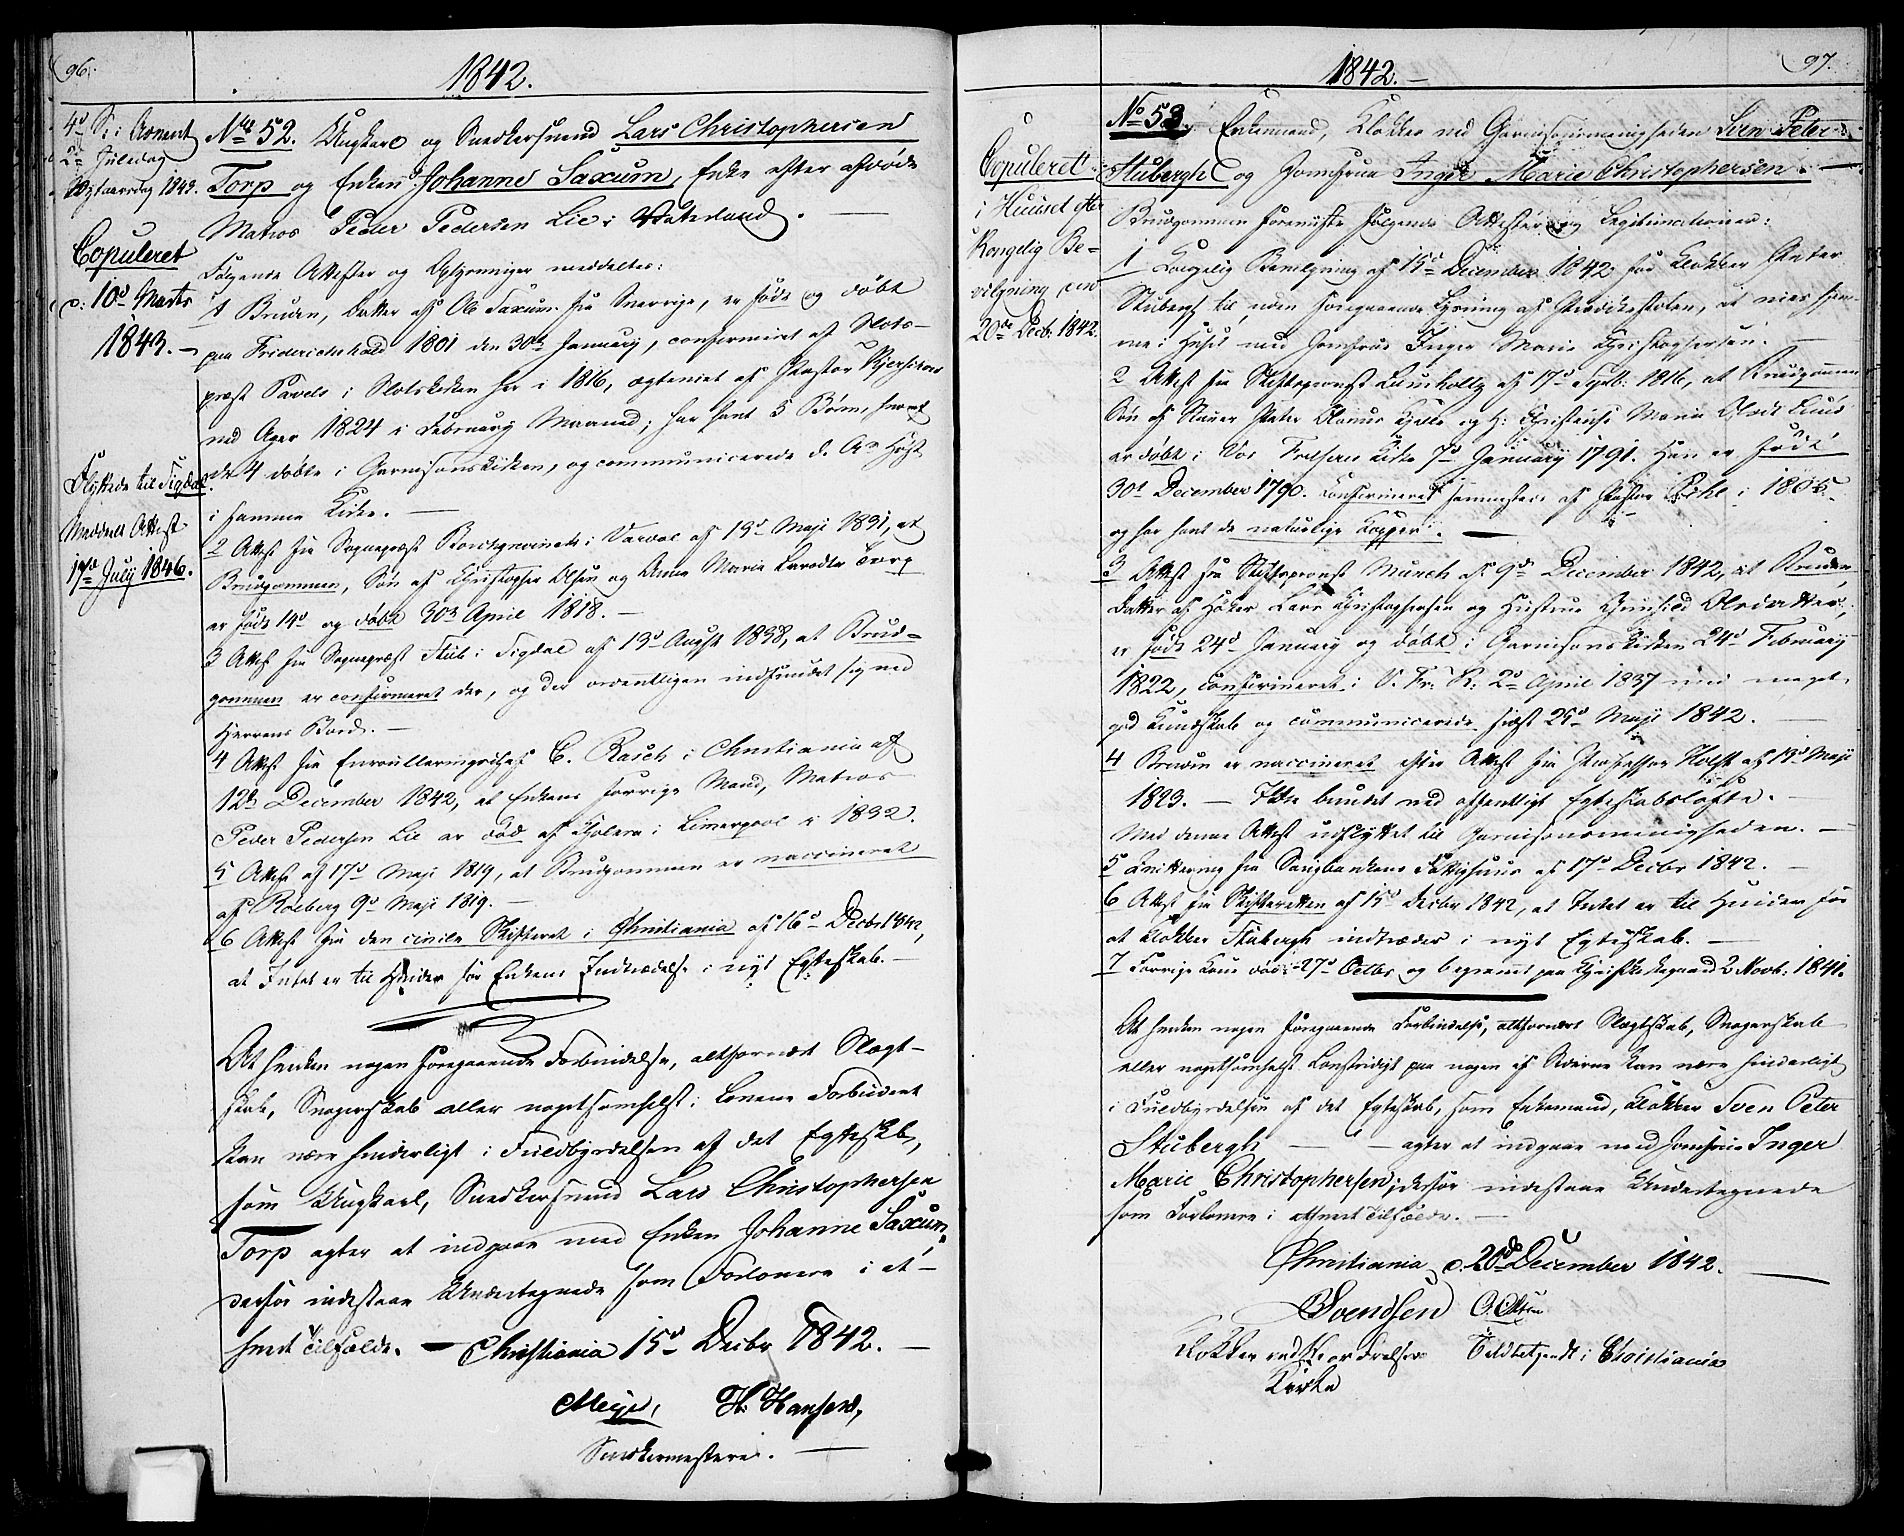 96.
1842.
4d S. i Advent
2d Juledag
Nytaarsdag 1843.
Copuleret
d. 10d Marts
1843. –
Flyttede til Sigdal.
Meddeelt Attest
17d July 1846.
No 52. Ungkarl og Snedkersvend Lars Christophersen
Torp og Enken Johanne Saxum, Enke efter afdøde
Matros Peder Pedersen Lie i Vaterland. —
Følgende Attester og Oplysninger meddeltes:
1 Bruden, Datter af Ole Saxum fra Sverrige, er født og døbt
paa Friderichshald 1801 den 30te January, confirmeret af Slots-
præst Pavels i Slotskirken her i 1816, ægteviet af Pastor
ved Ager 1824 i February Maaned; har havt 5 Børn, hvoraf
de 4 døbte i Garnisonskirken, og communicerede d. A. Høst
i samme Kirke. —
2 Attest fra Sognepræst i Vardal af 19d Maji 1831, at
Brudgommen, Søn af Christopher Olsen og Anne Marie Larsdtr Torp
er født 14d og døbt 30d April 1818. —
3 Attest fra Sognepræst Stub i Sigdal af 19d August 1838, at Brud-
gommen er confirmeret der, og der ordentligen indfundet sig ved
Herrens Bord. —
4 Attest fra Enroulleringschef C. Rasch i Christiania af
12te December 1842, at Enkens forrige Mand, Matros
Peder Pedersen Lie er død af Cholera i Liverpool i 1832.
5 Attest af 17d Maji 1819, at Brudgommen er vaccineret
af Roeberg 9d Maji 1819. —
6 Attest fra den civile Skifteret i Christiania af 16d Decbr 1842,
at Intet er til Hinder for Enkens Indtrædelse i nyt Egteskab. —
At hverken nogen foregaaende Forbindelse, altfornært Slægt-
skab, Svogerskab eller nogetsomhelst i Lovene Forbudent
kan være hinderligt i Fuldbyrdelsen af det Egteskab,
som Ungkarl, Snedkersvend Lars Christophersen
Torp agter at indgaae med Enken Johanne Saxum,
derfor indestaae Undertegnede som Forlovere i et-
hvert Tilfælde. — Christiania 15d Decbr 1842. —
Meyer, H. Hansen,
Snedkermestere. —
97.
1842. —
Copuleret
i Huuset efter
Kongelig Be-
vilgning den
20de Decb. 1842.
No 53. Enkemand, Klokker ved Garnisonsmenigheden Sven Peter
Stubergh og Jomfrue Inger Marie Christophersen. —
Brudgommen foreviste følgende Attester og Legitimationer:
1 Kongelig Bevilgning af 15d December 1842 for Klokker Peter
Stubergh til, uden foregaaende Lysning af Prædikestolen, at vies hjem-
me i Huset med Jomfrue Inger Marie Christophersen. —
2 Attest fra Stiftsprovst Lumholtz af 17d Septb. 1816, at Brudgommen
Søn af Peter og H. Christense Maria
er døbt i Vor Frelsers Kirke 7d January 1791. Han er født
30t December 1790. Confirmeret sammesteds af Pastor i 1805
og har havt de naturlige Kopper. —
3 Attest fra Stiftsprovst Munch af 9de December 1842, at Bruden,
Datter af Høker Lars Christophersen og Hustrue Gunhild Olsdatter,
er født 24d January og døbt i Garnisonskirken 24d February
1822, confirmeret i V. Fr. K. 2d April 1837 med meget
god Kundskab og communicerede sidst 29d Maji 1842. —
4 Bruden er vaccineret efter Attest fra Professor Holst af 13d Maji
1823. — Ikke bundet ved offentligt Egteskabsløfte. —
Med denne Attest udflyttet til Garnisonsmenigheden. —
5 Qvittering fra Fattighuus af 17d Decbr 1842. —
6 Attest fra Skifteretten af 15d Decbr 1842, at Intet er til Hinder for
at Klokker Stubergh indtræder i nyt Egteskab. —
7 Forrige Kone død 27d Octbr og begravet paa Christ Kirkegaard 2 Novb. 1841.
At hverken nogen foregaaende Forbindelse, altfornært Slægtskab, Svogerskab
eller nogetsomhelst Lovstridigt paa nogen af Siderne kan være hinderligt
i Fuldbyrdelsen af det Egteskab, som Enkemand, Klokker Sven Peter
Stubergh — agter at indgaae med Jomfrue Inger
Marie Christophersen, derfor indestaae Undertegnede
som Forlovere i ethvert Tilfælde. —
Christiania d. 20de December 1842. —
Svendsen O. Olsen
Klokker ved Vor Frelsers Toldbetjendt i Christiania
Kirke